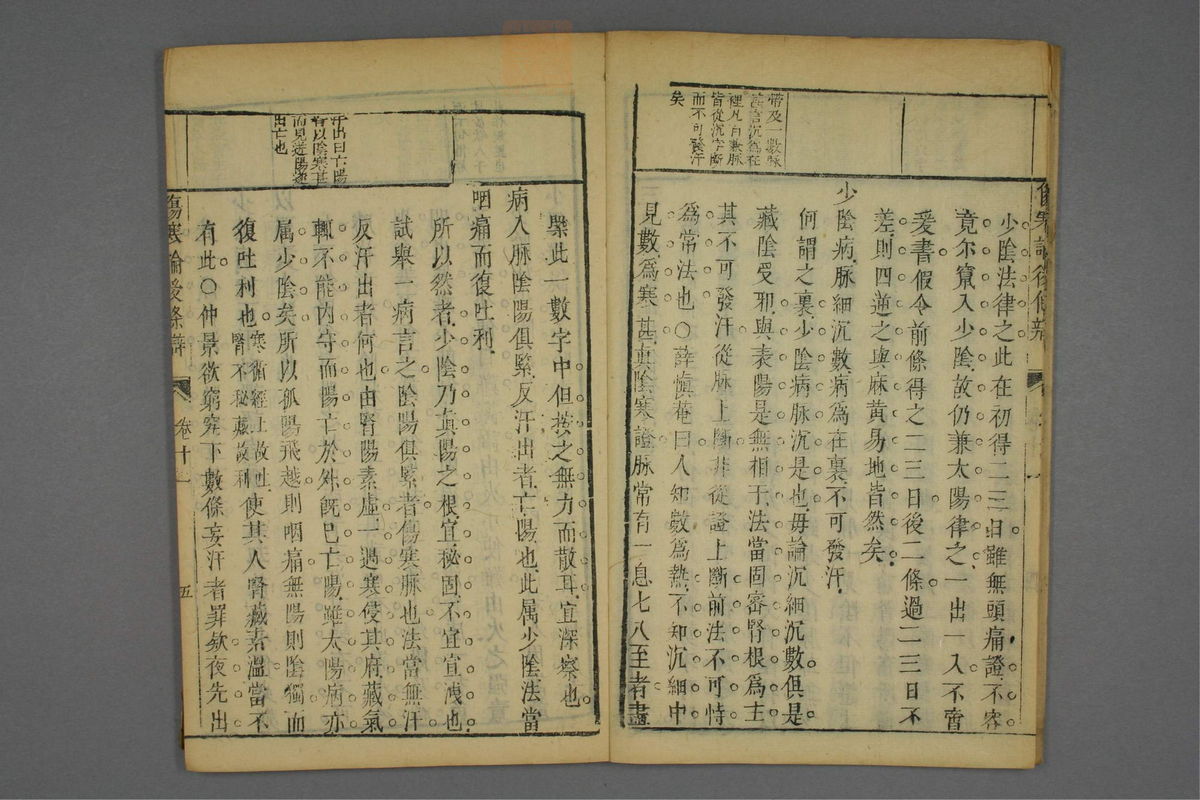 帶及一數脉
濇言沉爲在
裡凡百數脉
皆從沉字斷
而不可發汗
矣
少陰法律之此在初得二三日雖無頭痛證不容
竟尔竄入少陰故仍兼太陽律之一出一入不啻
爰書假令前條得之二三日後二條過二三日不
差則四逆之與麻黄易地皆然矣
少陰病脉細沉數病爲在裏不可發汗
何謂之裏少陰病脉沉是也毋論沉細沉數俱是
藏陰受邪與表陽是無相干法當固密腎根爲主
其不可發汗從脉上斷非從證上斷前法不可恃
爲常法也〇薛愼菴曰人知數爲熱不知沉細中
見數爲寒甚眞陰寒證脉常有一息七八至者盡
汗出曰亡陽
者以陰寒甚
而見逆陽難
出亡也
槩此一數字中但按之無力而散耳宜深察也
病人脉陰陽俱緊反汗出者亡陽也此属少陰法當
咽痛而復吐利
所以然者少陰乃眞陽之根宜秘固不宜宣洩也
試舉一病言之陰陽俱緊者傷寒脉也法當無汗
反汗出者何也由腎陽素虛一遇寒侵其府藏氣
輒不能内守而陽亡於外旣已亡陽雖太陽病亦
属少陰矣所以孤陽飛越則咽痛無陽則陰獨而
復吐利也寒循經上故吐腎不秘藏故利使其人腎藏素溫當不
有此〇仲景欲窮究下數條妄汗者罪欸夜先出
傷寒論後條辨 卷十一 五